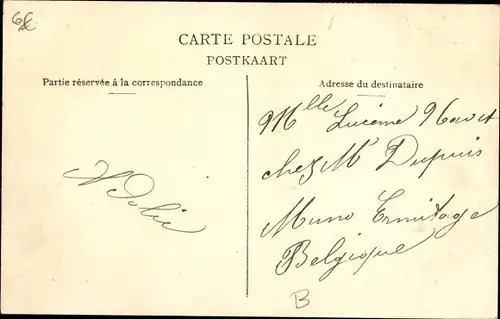 CARTE POSTALE
POSTKAART
Partie réservée à la correspondance
Adresse du destinataire
Mlle Lucienne
chez Mr Dupuis
Muno Ermitage
Belgique
B